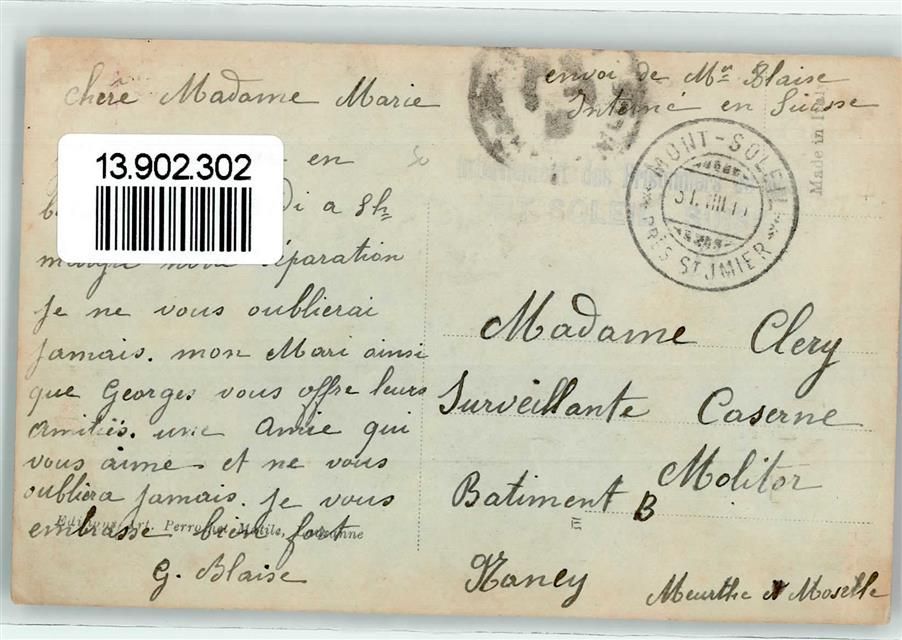 chère Madame Marie
13.902.302
en
di a 5h
séparation
je ne vous oublierai
jamais. mon Mari ainsi
que Georges vous offre leurs
amitiés. une Amie qui
vous aime et ne vous
oubliera jamais. je vous
embrasse bien fort
G. Blaise
Editions Art. Perrochet-Matile, Lausanne
envoi de Mr Blaise
Interné en Suisse
Made in
MONT-SOLEIL
31.VIII.1
PRÈS ST IMIER
Madame Clery
Surveillante Caserne
Molitor
Batiment B
III
Nancy
Meurthe et Moselle